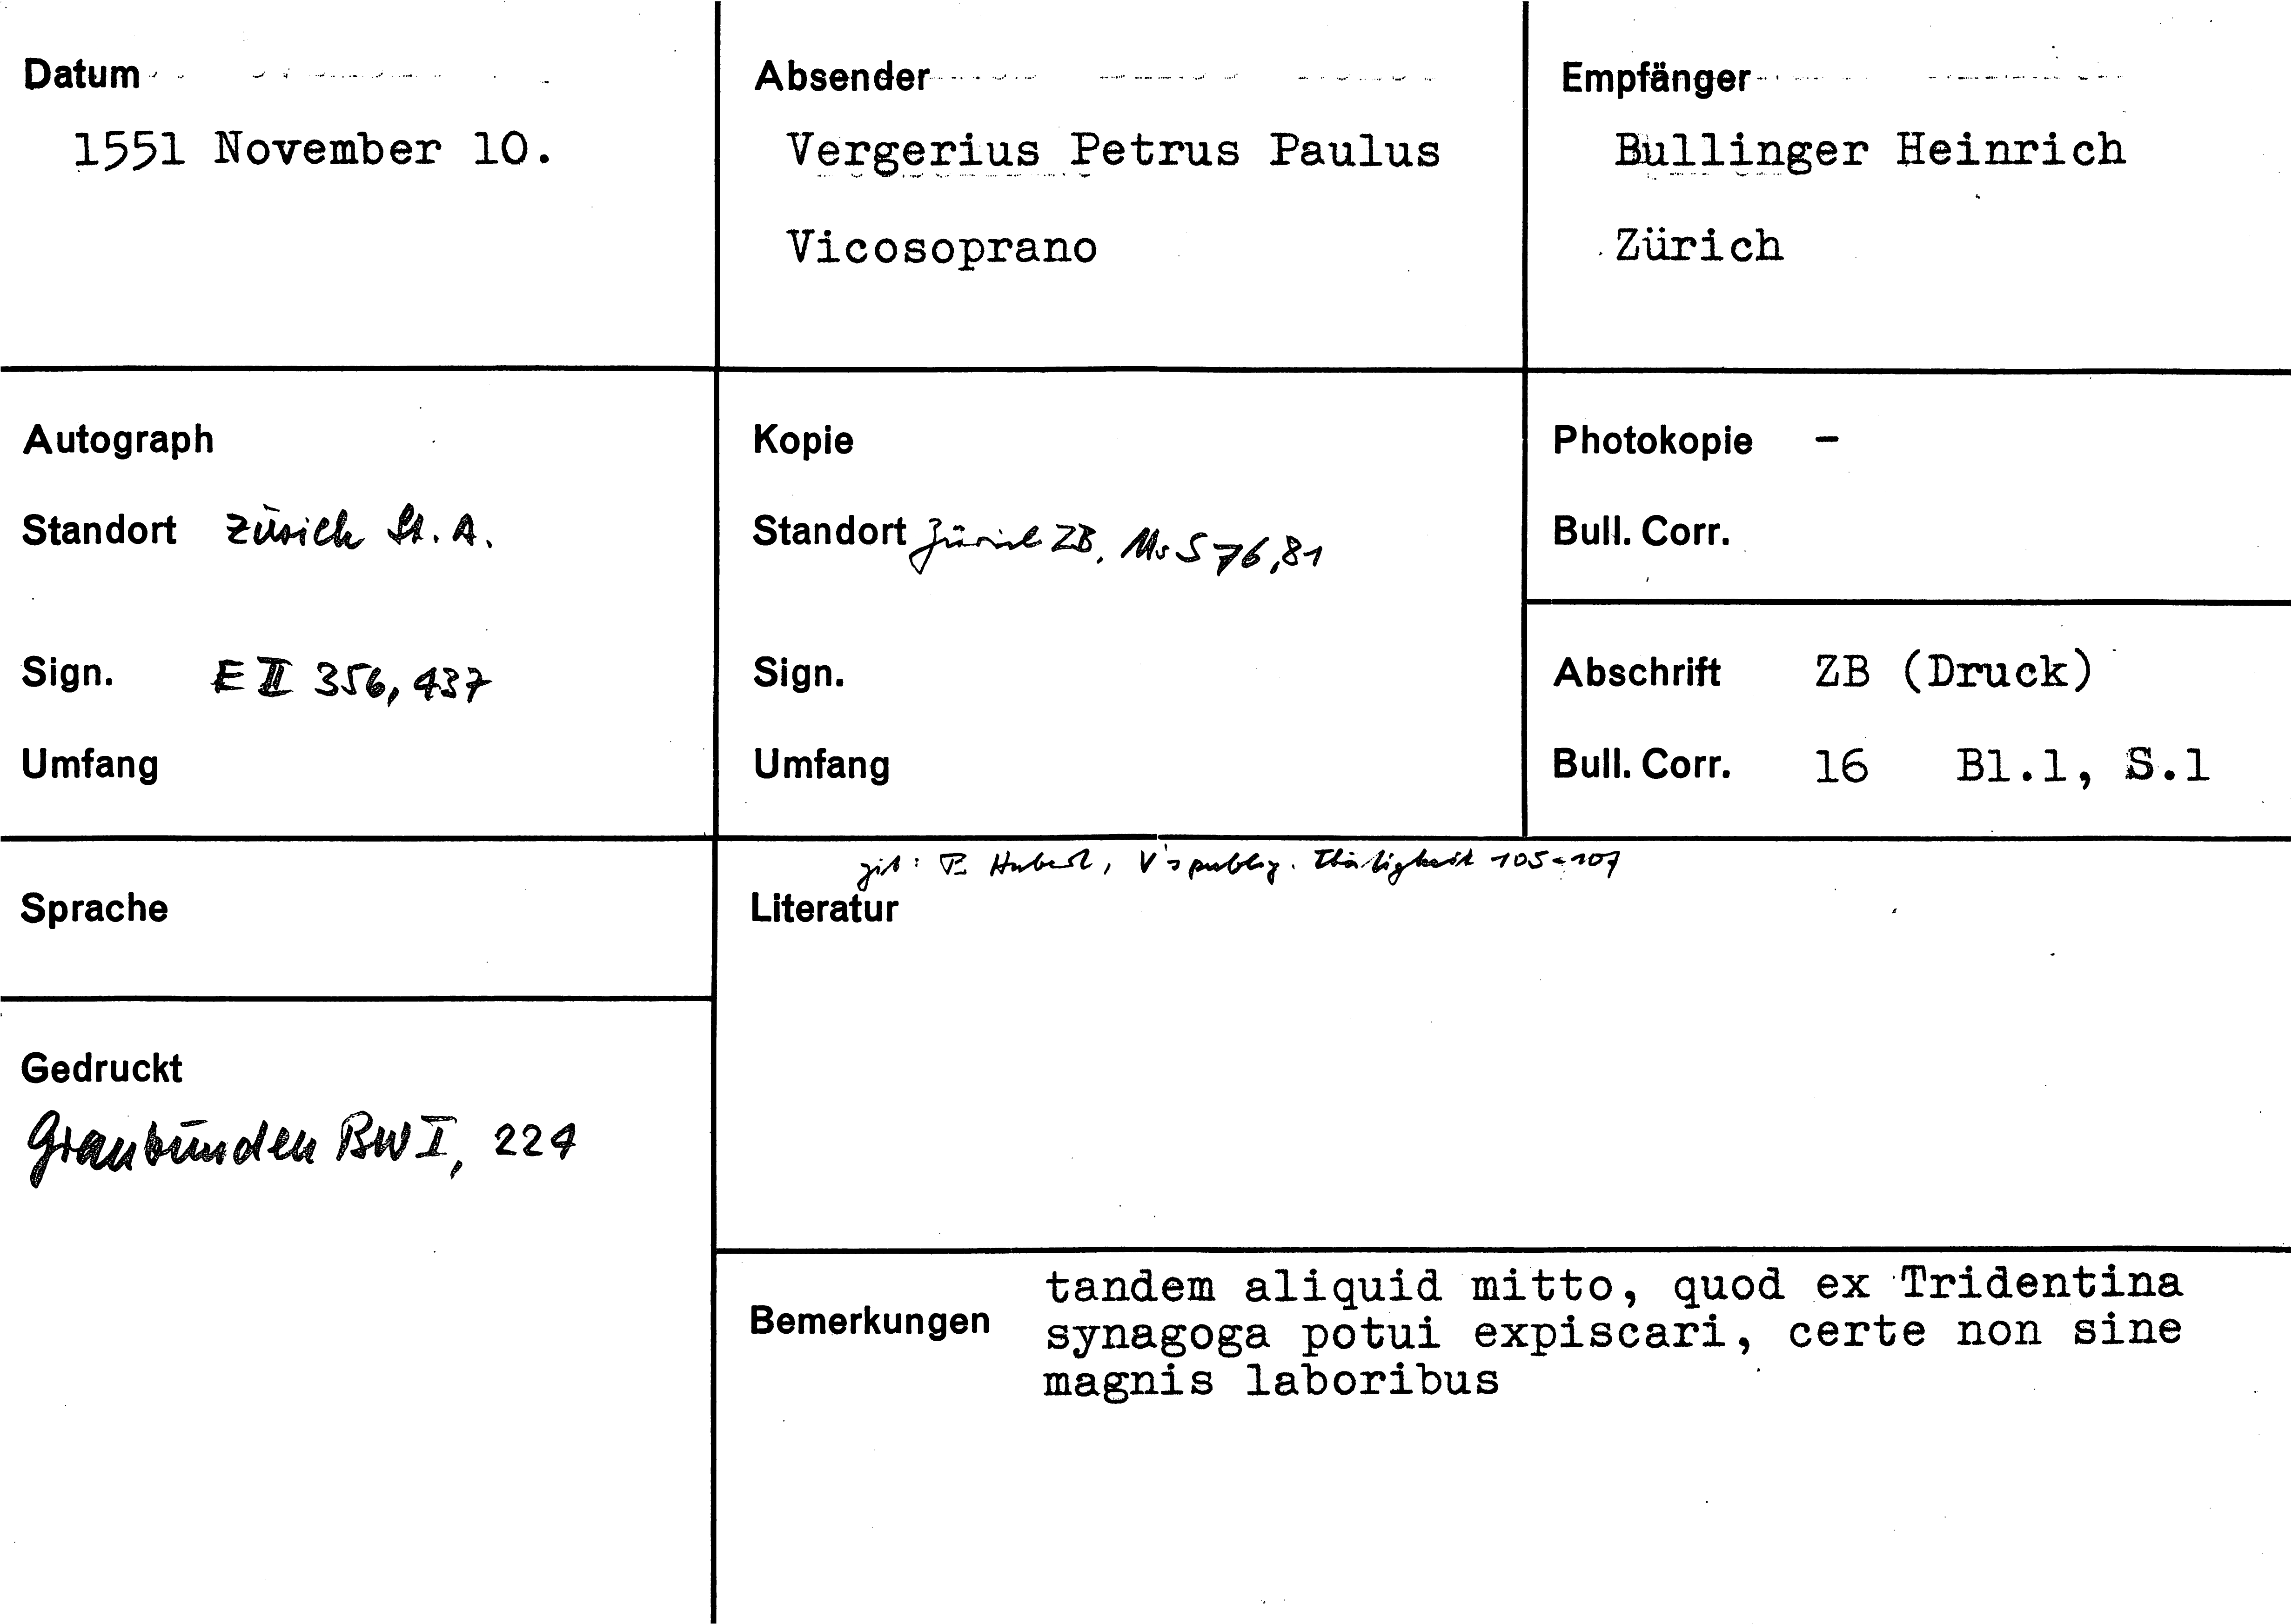 Datum
1551 November 10.
Absender
Vergerius Petrus Paulus
Vicosoprano
Empfänger
Bullinger Heinrich
Zürich
Autograph
Standort Zürich St. A.
Sign. E II 356, 437
Umfang
Kopie
Standort Zürich ZB, Ms S 76,81
Sign.
Umfang
Photokopie -
Bull. Corr.
Abschrift ZB (Druck)
Bull. Corr. 16 Bl.1, S.1
Sprache
Gedruckt
Graubünden BW I, 224
zit: F. Hubert, V's publiz. Thätigkeit 105-107
Literatur
Bemerkungen
tandem aliquid mitto, quod ex Tridentina
synagoga potui expiscari, certe non sine
magnis laboribus